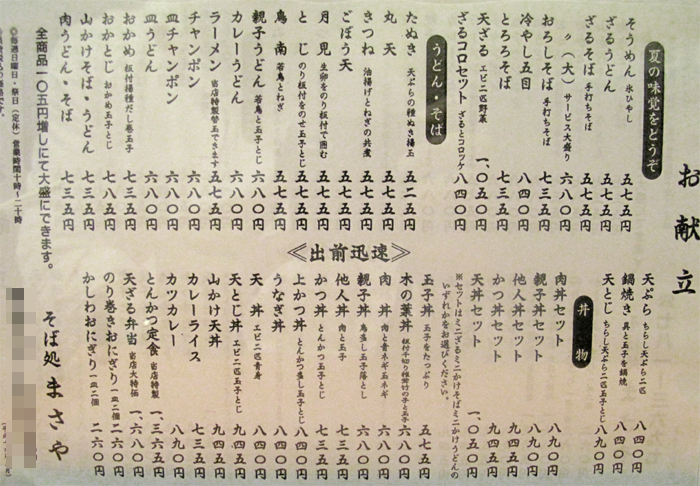 お献立
夏の味覚をどうぞ
そうめん 氷ひやし 五七五円
ざるうどん 五七五円
ざるそば 手打ちそば 五七五円
〃(大) サービス大盛り 六八〇円
おろしそば 手打ちそば 七三五円
冷やし五目 八四〇円
とろろそば 七三五円
天ざる エビ二匹野菜 一、〇五〇円
ざるコロセット ざるとコロッケ 八四〇円
うどん・そば
たぬき 天ぷらの種ぬき揚玉 五二五円
丸天 五七五円
きつね 油揚げとねぎの共煮 五七五円
ごぼう天 五七五円
月見 生卵をのり板付で囲む 五七五円
とじ のり板付をのせ玉子とじ 五七五円
鳥南 若鳥とねぎ 五七五円
親子うどん 若鳥と玉子とじ 六八〇円
カレーうどん 六八〇円
ラーメン 当店特製替玉できます 五七五円
チャンポン 六八〇円
皿チャンポン 六八〇円
皿うどん 六八〇円
おかめ 板付揚種だし巻玉子 七三五円
おかとじ おかめ玉子とじ 七八五円
山かけそば・うどん 七三五円
肉うどん・そば 七三五円
全商品一〇五円増しにて大盛にできます。
◎毎週日曜日・祭日(定休) 営業時間十時~二十時
≪出前迅速≫
天ぷら ちらし天ぷら二匹 八四〇円
鍋焼き 具と玉子を鍋焼 八四〇円
天とじ ちらし天ぷら二匹玉子とじ 八九〇円
丼物
肉丼セット 八九〇円
親子丼セット 八九〇円
他人丼セット 八九〇円
かつ丼セット 九四五円
天丼セット 一、〇五〇円
※セットはミニざるミニかけそばミニかけうどんの
いずれかをお選びください。
玉子丼 玉子をたっぷり 五七五円
木の葉丼 六八〇円
肉丼 肉と青ネギ玉ネギ 六八〇円
親子丼 鳥蒸し玉子落とし 七三五円
他人丼 肉と玉子 七三五円
かつ丼 とんかつ玉子とじ 七三五円
上かつ丼 とんかつ蒸し玉子とじ 八四〇円
うなぎ丼 八四〇円
天丼 エビ二匹青身 八四〇円
天とじ丼 エビ二匹玉子とじ 九四五円
山かけ天丼 九四五円
カレーライス 七三五円
カツカレー 八九〇円
とんかつ定食 当店特製 一、三六五円
天ざる弁当 当店大特価 一、六八〇円
のり巻きおにぎり 一皿二個 二六〇円
かしわおにぎり 一皿二個 二六〇円
そば処まさや